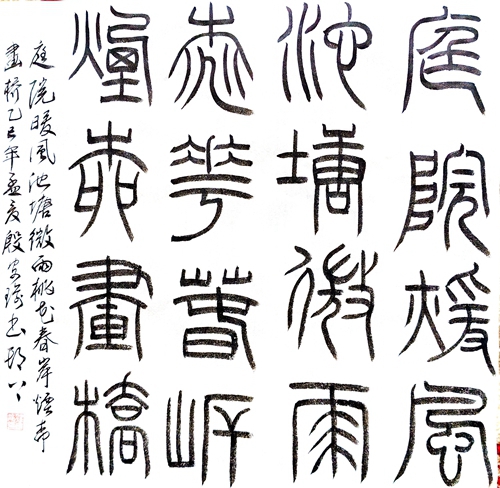 庭院煖風
池塘微雨
桃花春岸
煙市畫橋
庭院暖風池塘微雨桃花春岸煙市
畫橋乙巳年孟夏殷書